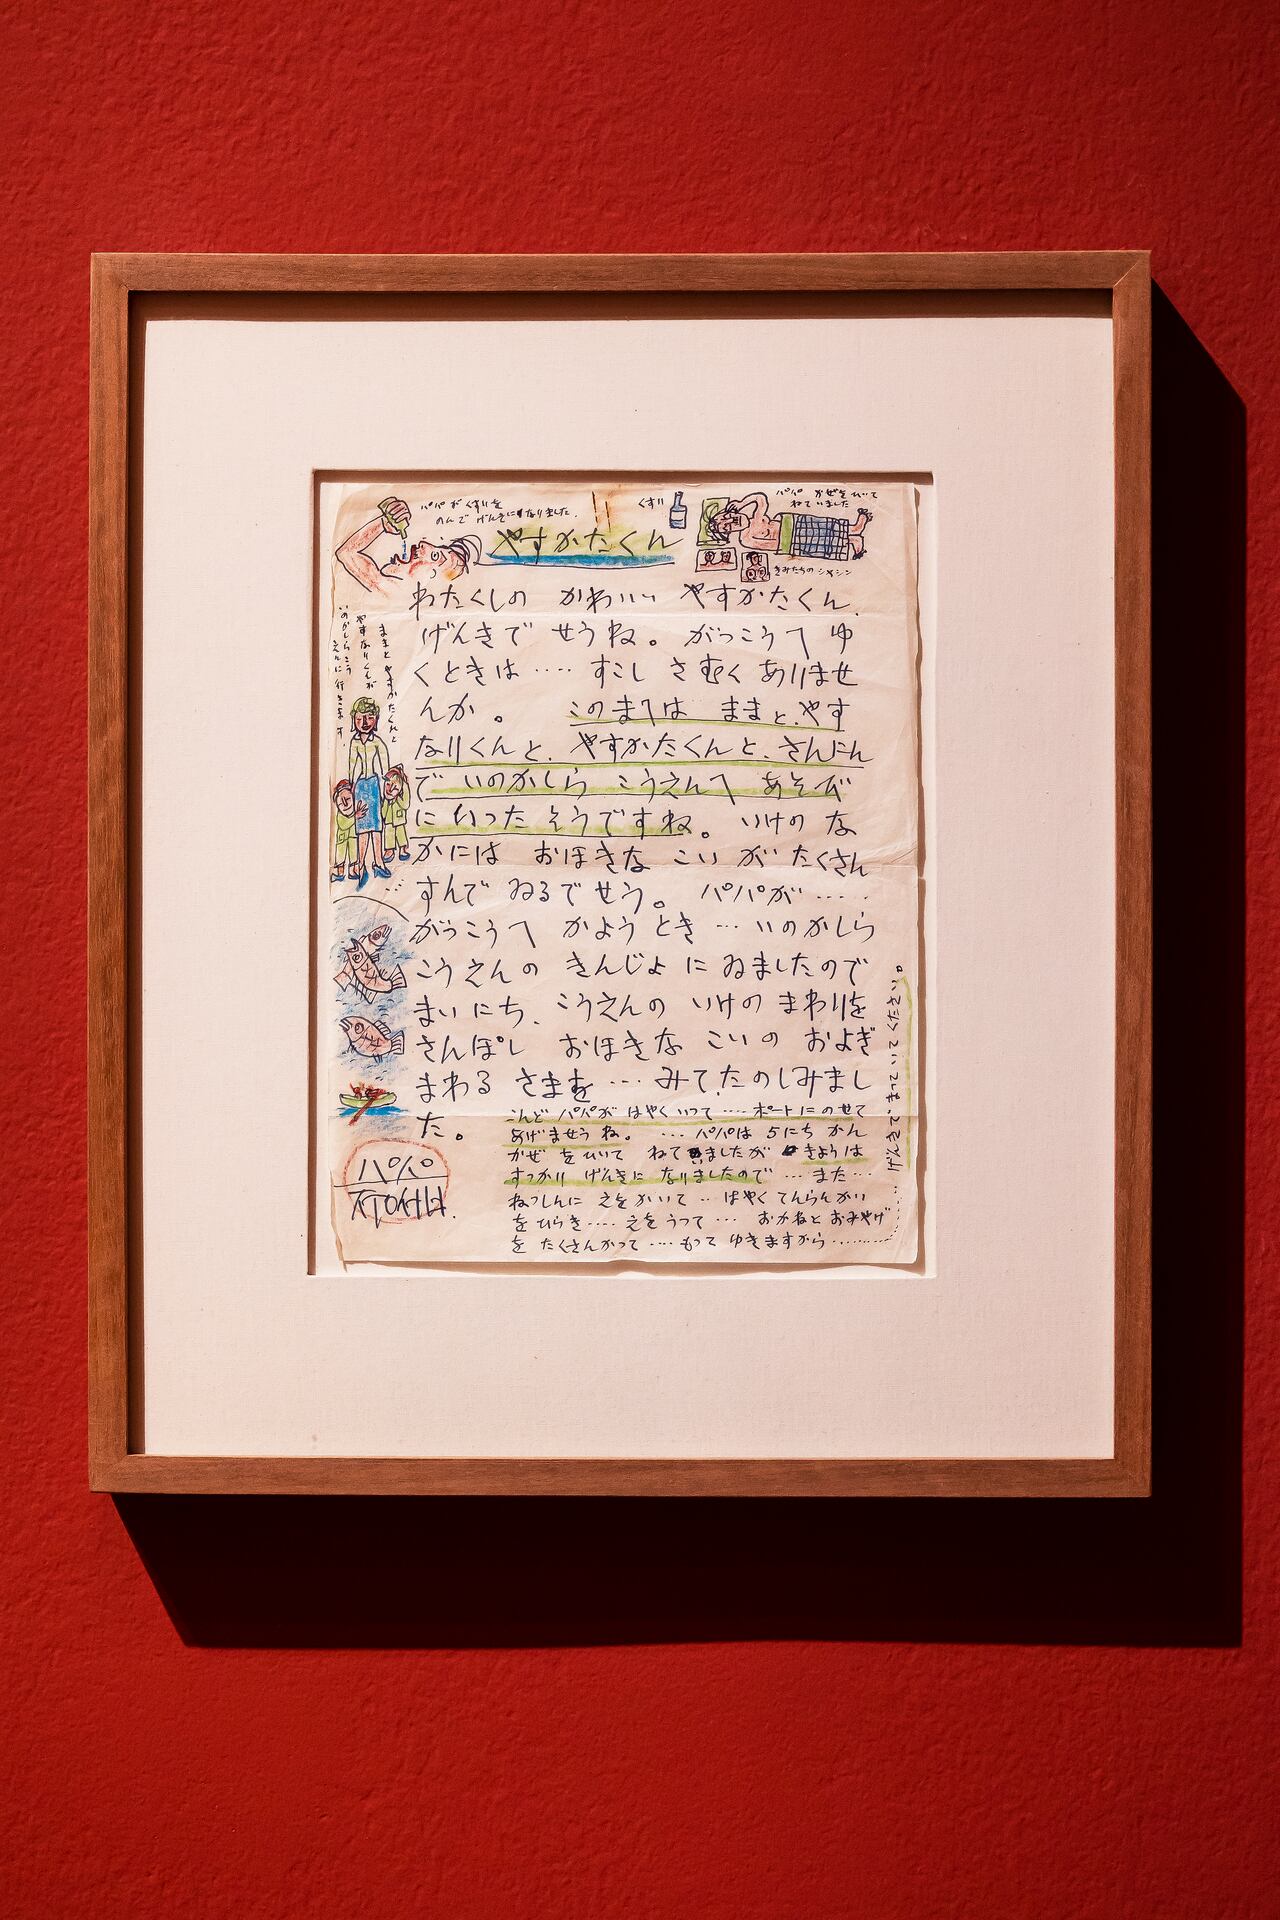 パパがくすりを
のんで げんきになりました.
くすり
パパ かぜをひいて
ねていました
きみたちのシャシン
やすかたくん
わたくしの かわいい やすかたくん、
げんきで せうね。 がっこうへ ゆ
くときは‥‥ すこし さむく ありませ
んか。 このまへは ままと、やす
なりくんと、やすかたくんと、さんにん
で いのかしら こうえんへ あそび
に いった そうですね。 いけの な
かには おほきな こい が たくさん
すんで ゐるで せう。 パパが‥‥‥
がっこうへ かよう とき‥‥ いのかしら
こうえんの きんじょ に ゐましたので
まいにち、こうえんの いけの まわりを
さんぽし おほきな こいの およぎ
まわる さまを‥‥ みて、たのしみまし
た。
こんど パパが はやくいって‥‥ ボートにのせて
あげませうね。 ‥‥ パパは 5にち かん
かぜ をひいて ねて ゐましたが きようは
すっかり げんきに なりましたので‥‥ また‥‥
ねっしんに えをかいて‥‥ はやく てんらんかい
を ひらき‥‥ えを うって‥‥ おかねと おみやげ
を たくさんかって‥‥ もって ゆきますから‥‥‥‥
げんきで、まっていてください。
ままと やすかたくんと
やすなりくんが
いのかしらこう
えんに 行きます.
パパ